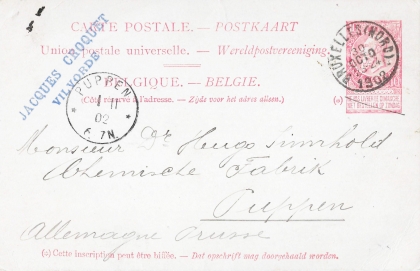 CARTE POSTALE. — POSTKAART
Union postale universelle. — Wereldpostvereeniging.
BELGIQUE. — BELGIE.
(Côté réservé à l'adresse. — Zijde voor het adres alleen.)
JACQUES CROQUET
VILVORDE
PUPPEN
1 11
02
6-7N.
BRUXELLES (NORD)
30
OCTO
1902
(a)
Monsieur Dr Hugo Simnhold
Chemische Fabrik
Puppen
Allemagne Prusse
(a) Cette inscription peut être biffée. — Dat opschrift mag doorgehaald worden.